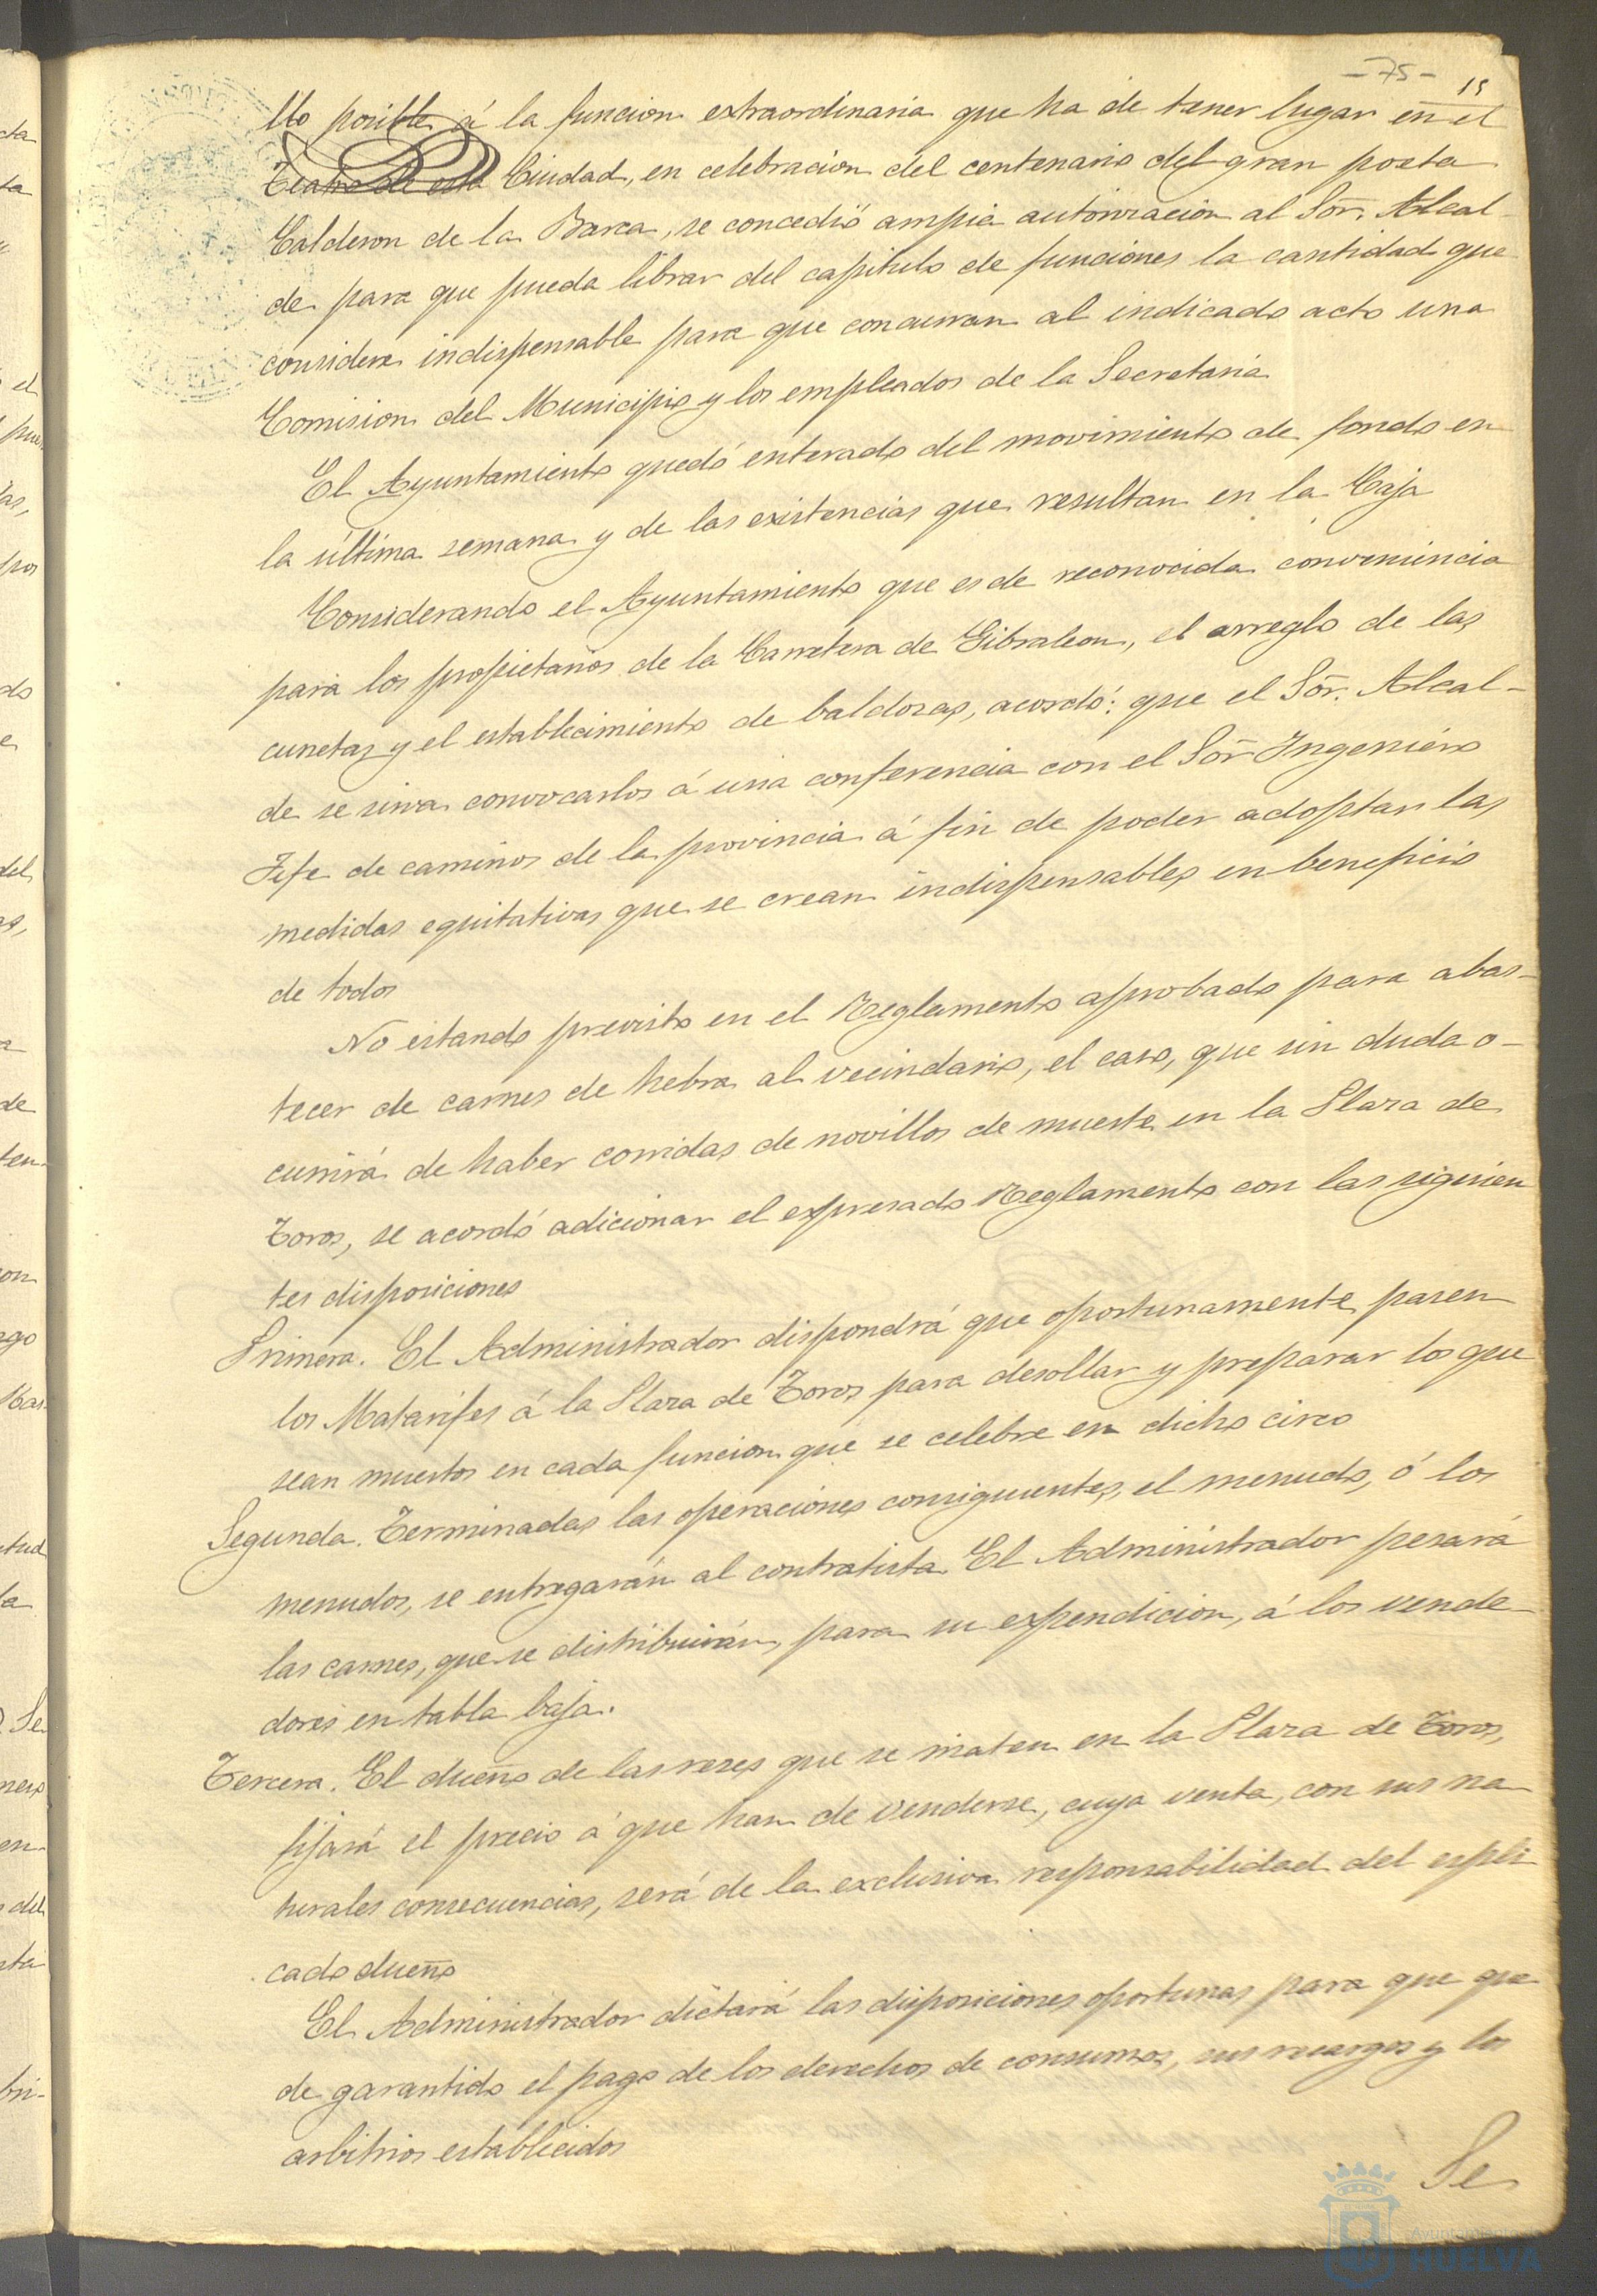 -75-
15
llo posible á la funcion extraordinaria que ha de tener lugar en el
Teatro de esta Ciudad, en celebracion del centenario del gran poeta
Calderon de la Barca, se concedió ampia autorizacion al Sor. Alcal-
de para que pueda librar del capitulo de funciones la cantidad que
considere indispensable para que concurran al indicado acto una
Comision del Municipio y los empleados de la Secretaria
El Ayuntamiento quedó enterado del movimiento de fondo en
la última semana y de las existencias que resultan en la Caja
Considerando el Ayuntamiento que es de reconocida conveniencia
para los propietarios de la Carretera de Gibraleon, el arreglo de las
cunetas y el establecimiento de baldosas, acordó: que el Sor. Alcal-
de se sirva convocarlos á una conferencia con el Sor Ingeniero
Jefe de caminos de la provincia á fin de poder adoptar las
medidas equitativas que se crean indispensables en beneficio
de todos
No estando previsto en el Reglamento aprobado para abas-
tecer de carnes de hebra al vecindario, el caso, que sin duda o-
currirá de haber corridas de novillos de muerte en la Plaza de
Toros, se acordó adicionar el expresado Reglamento con las siguien
tes disposiciones
Primera. El Administrador dispondrá que oportunamente pasen
los Matarifes á la Plaza de Toros para desollar y preparar los que
sean muertos en cada funcion que se celebre en dicho circo
Segunda. Terminadas las operaciones consiguientes, el menudo, ó los
menudos, se entregarán al contratista. El Administrador pesará
las carnes, que se distribuirán, para su expendicion, á los vende-
dores en tabla baja.
Tercera. El dueño de las reses que se maten en la Plaza de Toros,
fijará el precio á que han de venderse, cuya venta, con sus na-
turales consecuencias, será de la exclusiva responsabilidad del espli
cado dueño
El Administrador dictará las disposiciones oportunas para que que-
de garantido el pago de los derechos de consumos, sus recargos y los
arbitrios establecidos
Se
Ayuntamiento
HUELVA